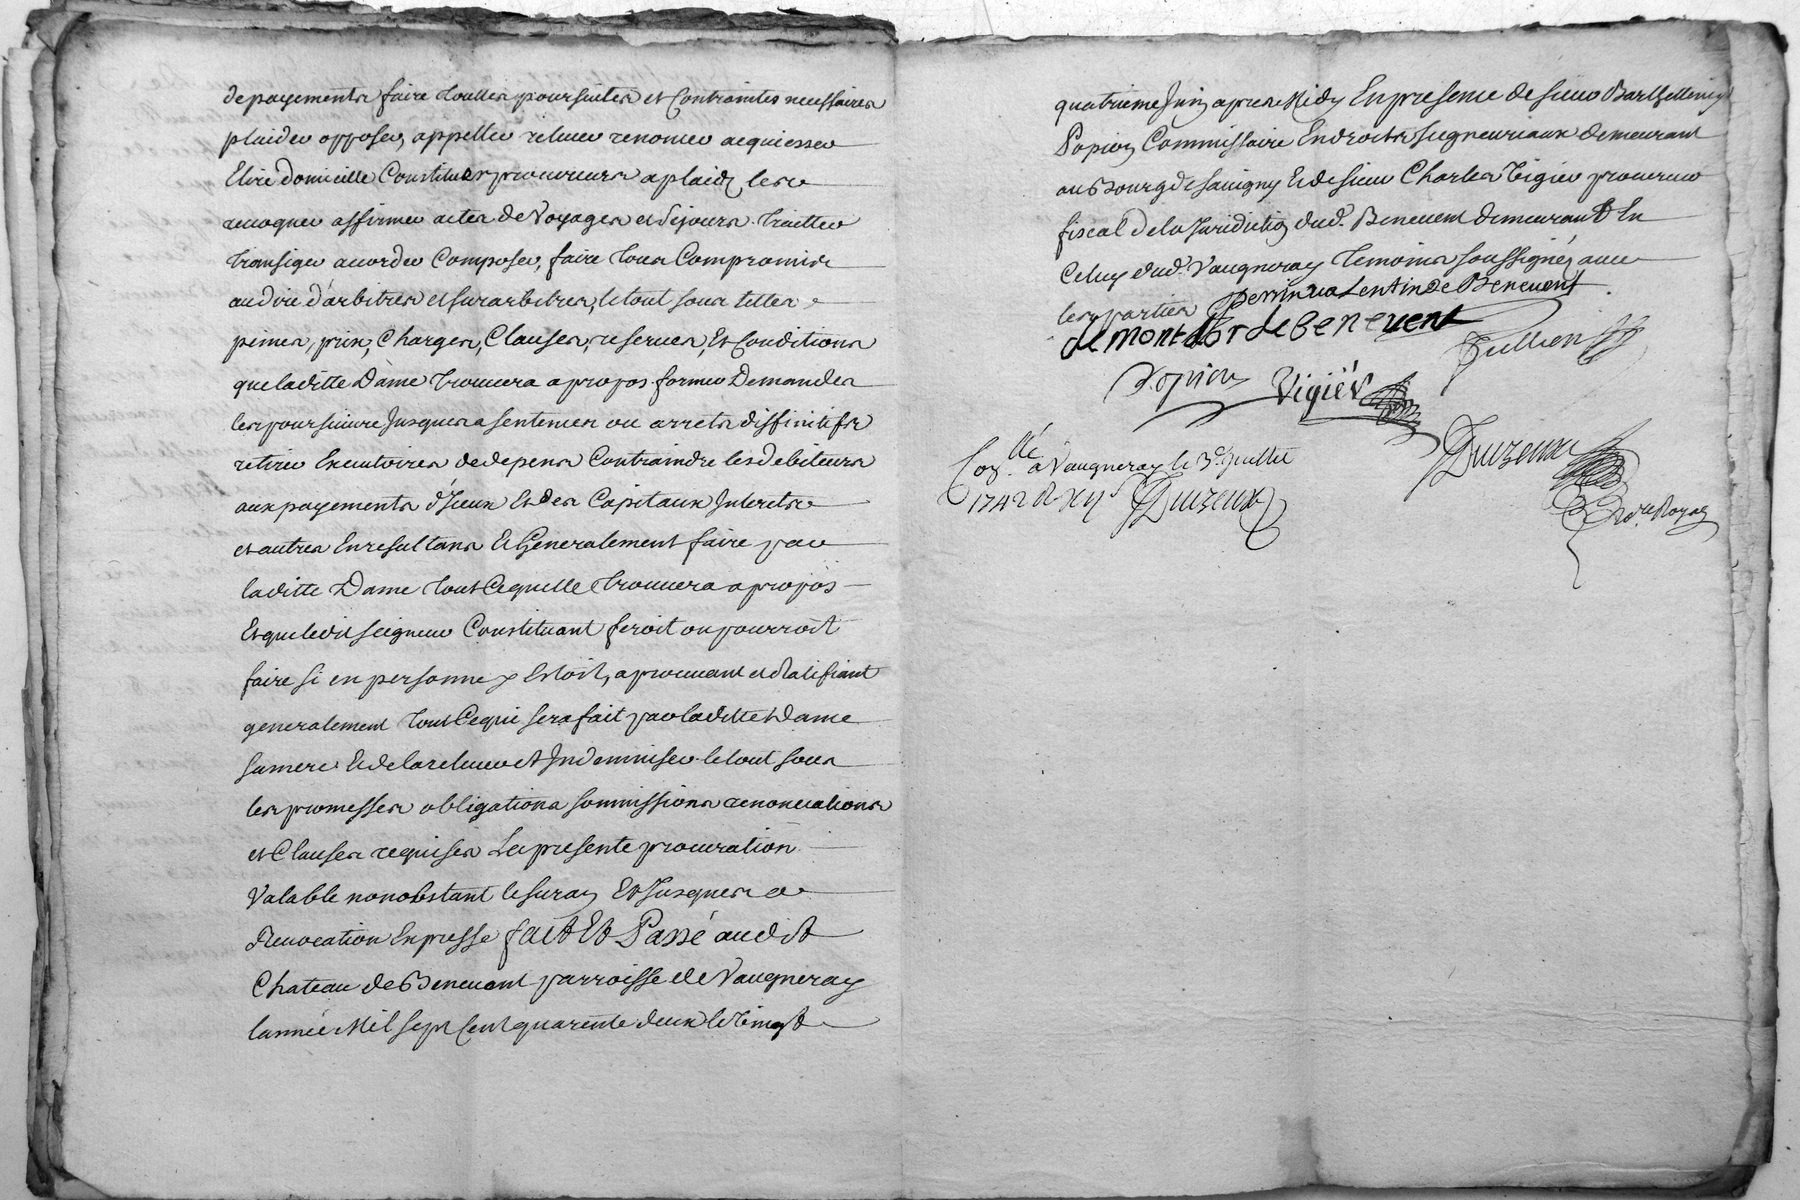 depayements faire touttes poursuites et Contraintes necessaires
plaider opposer, appeller relever renoncer acquiesser
Elire domicille Constituer procureurs a plaids les
revoquer affirmer actes de Voyages et sejours traitter
transiger accorder Composer, faire tous Compromis
au dire d'arbitres et surarbitres, le tout sous telles
peines, prix, Charges, Clauses, reserves, Et Conditions
que laditte Dame trouvera a propos former Demandes
les poursuivre Jusques a sentences ou arrets diffinitifs
retirer Executoires de depens Contraindre les debiteurs
aux payements d'Iceux Et des Capitaux Interets
et autres En resultans Et Generalement faire par
laditte Dame tout Ce quelle trouvera a propos
Et que ledit seigneur Constituant feroit ou pourroit
faire si en personne y Estoit, aprouvant et Ratifiant
generalement tout Ce qui sera fait par laditte Dame
sa mere Et de la relever et Indemniser le tout sous
les promesses obligations soumissions renonciations
et Clauses requises La presente procuration
Valable nonobstant le suran Et Jusques a
Revocation Expresse fait Et Passé audit
Chateau de Benevent parroisse de Vaugneray
lannée Mil sept Cent quarente deux le Vingt
quatrieme Juin apres Midy En presence de sieur Barthellemy
Popion Commissaire En droits seigneuriaux demeurant
au Bourg de savigny Et de sieur Charles Vigier procureur
fiscal de la Juridiction dud. Benevent demeurant En
Celuy dud. Vaugneray temoins soussignéz avec
les parties perrin valentin de Benevent
de mont d'or de benevent
Jullien
Popion Vigiér
Duizeux
No.re Royal
Con.llé a Vaugneray le 3e Juillet
1742 R xij s Duizeux